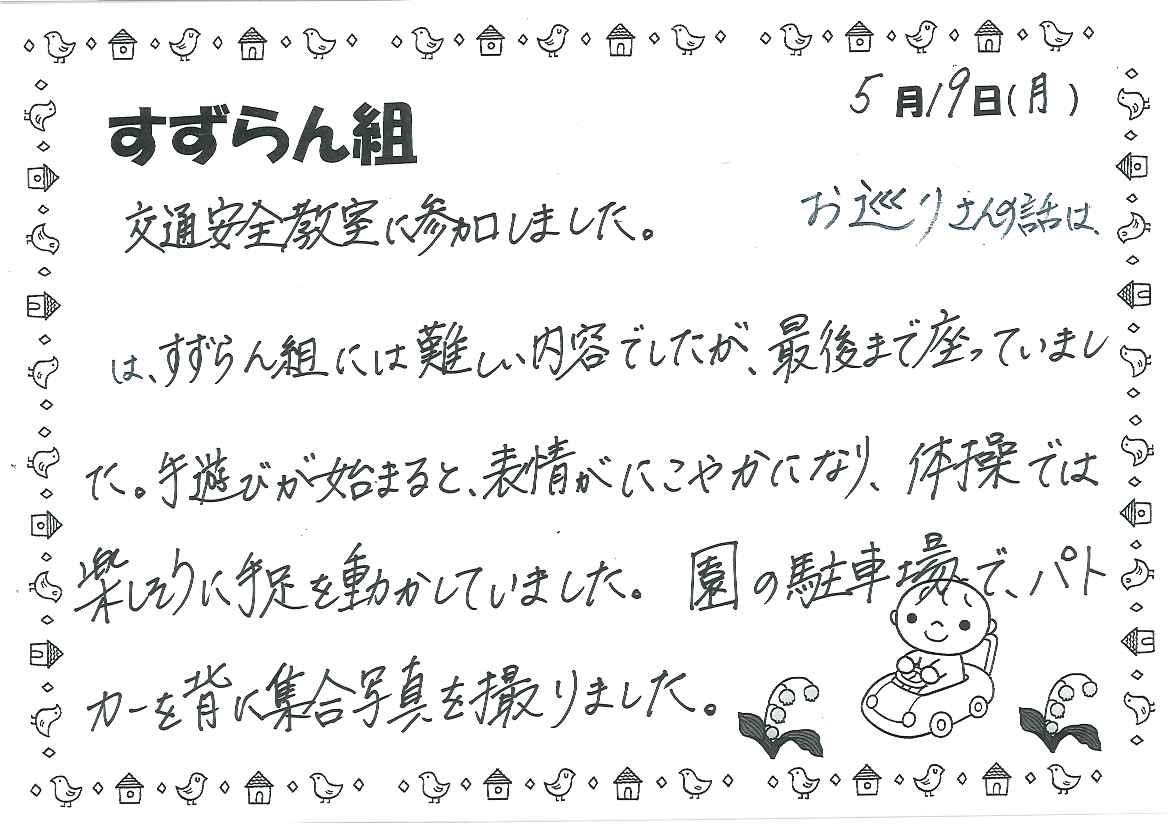 5月19日(月)
すずらん組
交通安全教室に参加しました。 お巡りさんの話は、
は、すずらん組には難しい内容でしたが、最後まで座っていまし
た。手遊びが始まると、表情がにこやかになり、体操では
楽しそうに手足を動かしていました。 園の駐車場で、パト
カーを背に集合写真を撮りました。